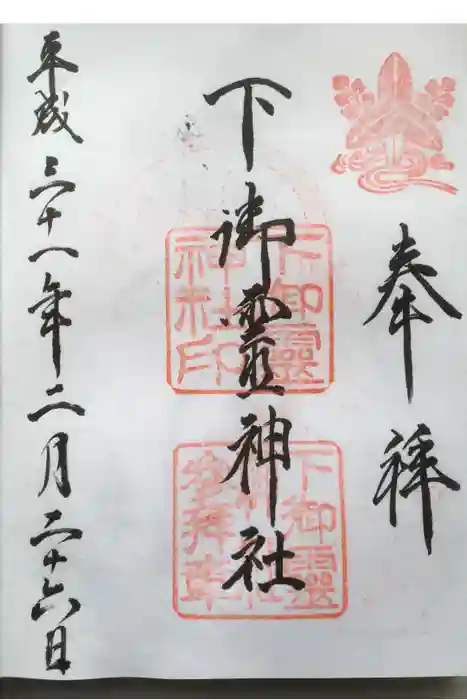 奉拝
下御靈神社
下御靈
神社印
下御靈
神社
参拝章
平成三十一年二月二十六日